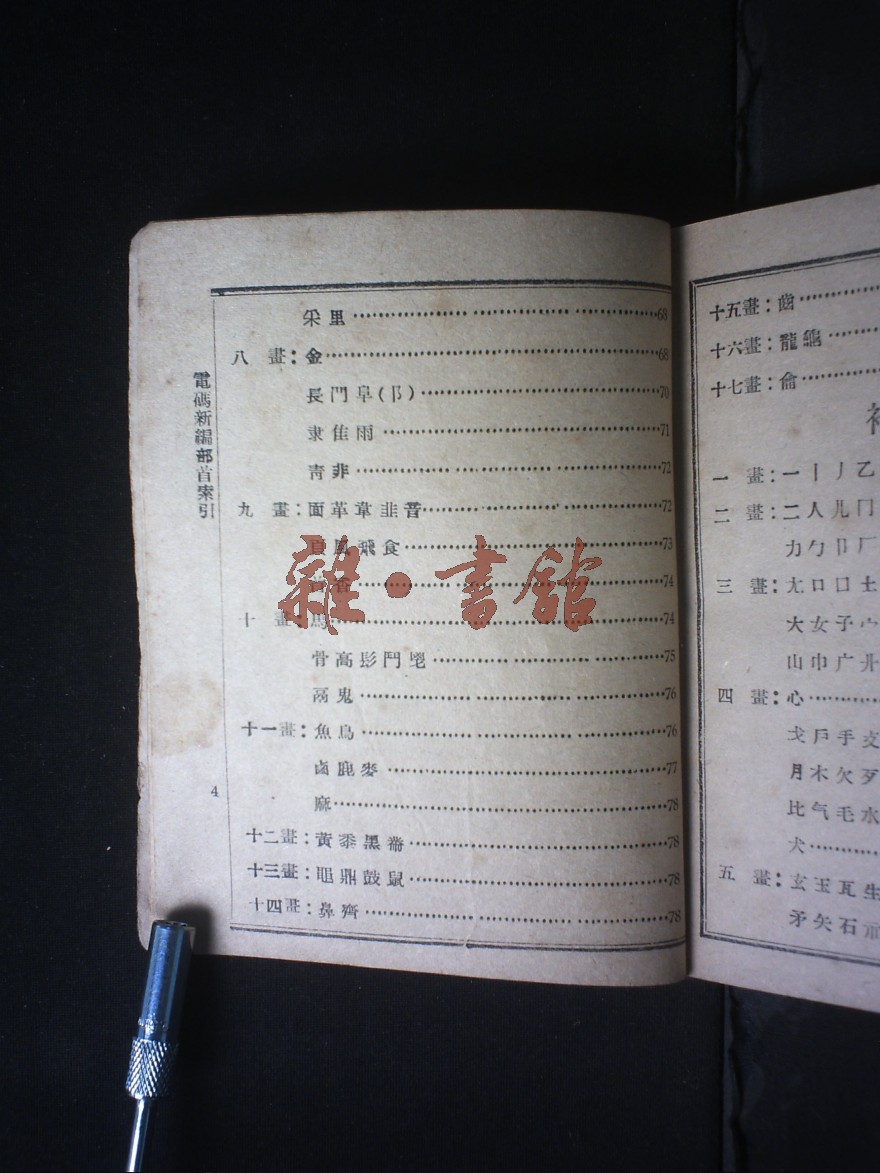 電碼新編部首索引
4
釆里 68
八畫：金 68
長門阜(阝) 70
隶隹雨 71
靑非 72
九畫：面革韋韭音 72
頁風飛食 73
首香 74
十畫：馬 74
骨高髟鬥鬯 75
鬲鬼 76
十一畫：魚鳥 76
鹵鹿麥 77
麻 78
十二畫：黃黍黑黹 78
十三畫：黽鼎鼓鼠 78
十四畫：鼻齊 78
雜·書館
十五畫：齒
十六畫：龍龜
十七畫：龠
一畫：一丨丿乙
二畫：二人儿冂
力勹卩厂
三畫：尢口囗土
大女子宀
山巾广廾
四畫：心
戈戶手支
月木欠歹
比气毛水
犬
五畫：玄玉瓦生
矛矢石示